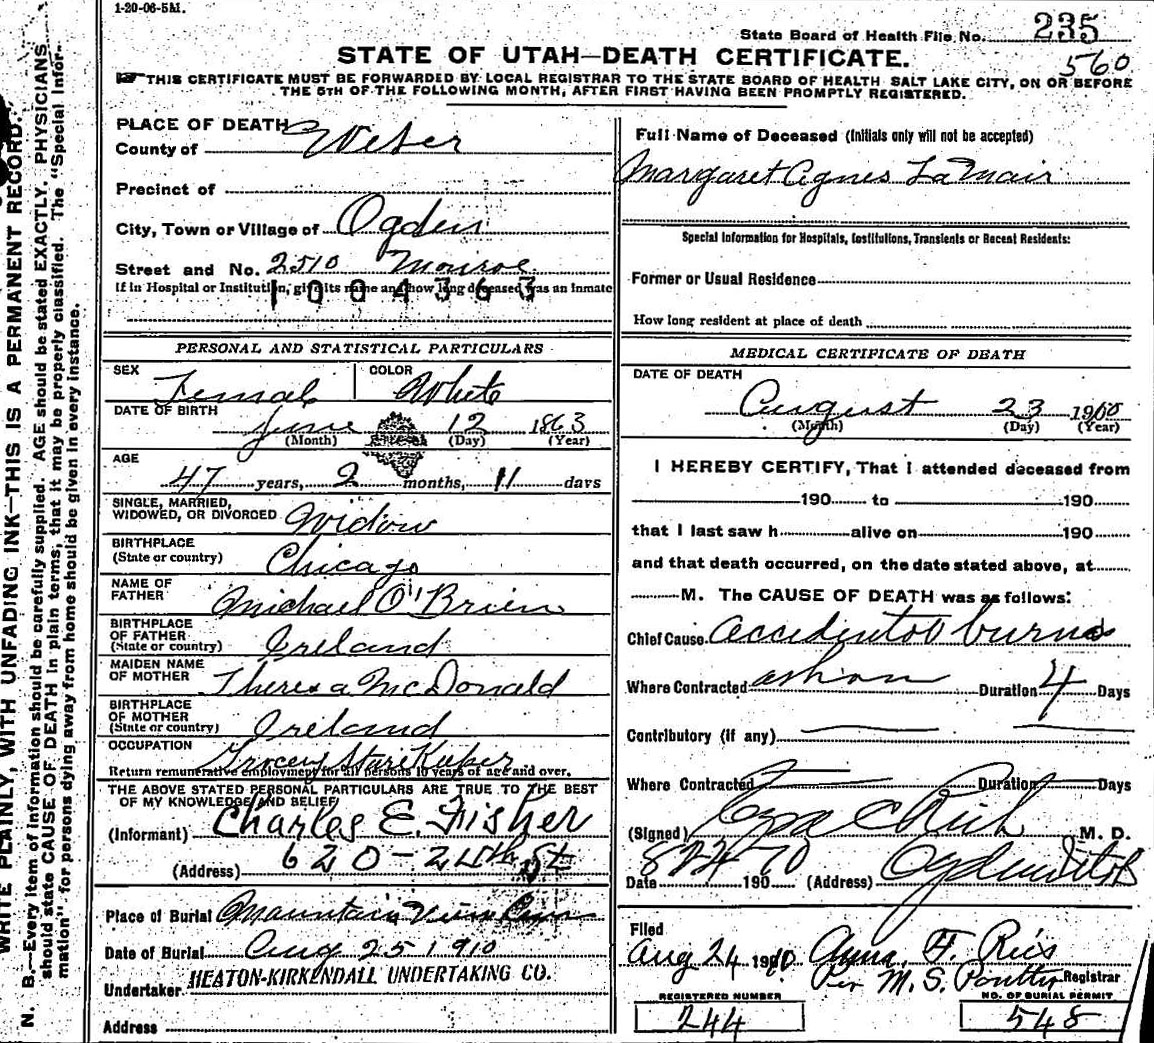 1-20-06-5M.
State Board of Health File No. 235
560
STATE OF UTAH—DEATH CERTIFICATE.
THIS CERTIFICATE MUST BE FORWARDED BY LOCAL REGISTRAR TO THE STATE BOARD OF HEALTH SALT LAKE CITY, ON OR BEFORE
THE 5TH OF THE FOLLOWING MONTH, AFTER FIRST HAVING BEEN PROMPTLY REGISTERED.
WRITE PLAINLY, WITH UNFADING INK—THIS IS A PERMANENT RECORD.
N. B.—Every item of information should be carefully supplied. AGE should be stated EXACTLY. PHYSICIANS
should state CAUSE OF DEATH in plain terms, that it may be properly classified. The "Special Infor-
mation" for persons dying away from home should be given in every instance.
PLACE OF DEATH
County of Weber
Precinct of
City, Town or Village of Ogden
Street and No. 2510 Monroe
If in Hospital or Institution, give its name and how long deceased was an inmate
1004363
PERSONAL AND STATISTICAL PARTICULARS
SEX Female COLOR White
DATE OF BIRTH
June 12 1863
(Month) (Day) (Year)
AGE
47 years, 2 months, 11 days
SINGLE, MARRIED,
WIDOWED, OR DIVORCED Widow
BIRTHPLACE
(State or country) Chicago
NAME OF
FATHER Michael O'Brien
BIRTHPLACE
OF FATHER
(State or country) Ireland
MAIDEN NAME
OF MOTHER Theresa McDonald
BIRTHPLACE
OF MOTHER
(State or country) Ireland
OCCUPATION Grocery Store Keeper
Return remunerative employment for all persons 10 years of age and over.
THE ABOVE STATED PERSONAL PARTICULARS ARE TRUE TO THE BEST
OF MY KNOWLEDGE AND BELIEF
(Informant) Charles E. Fisher
(Address) 620-24th St
Place of Burial Mountain View Cem
Date of Burial Aug 25 1910
Undertaker HEATON-KIRKENDALL UNDERTAKING CO.
Address
Full Name of Deceased (Initials only will not be accepted)
Margaret Agnes LaMair
Special Information for Hospitals, Institutions, Transients or Recent Residents:
Former or Usual Residence
How long resident at place of death
MEDICAL CERTIFICATE OF DEATH
DATE OF DEATH
August 23 1910
(Month) (Day) (Year)
I HEREBY CERTIFY, That I attended deceased from
190 to 190
that I last saw h alive on 190
and that death occurred, on the date stated above, at
M. The CAUSE OF DEATH was as follows:
Chief Cause accidental burns
Where Contracted at home Duration 4 Days
Contributory (if any)
Where Contracted Duration Days
(Signed) Ezra C Rich M. D.
Date 8/24 10 190 (Address) Ogden Utah
Filed
Aug 24 1910 Anna F. Reis
Per M. S. Poulter Registrar
REGISTERED NUMBER
244
NO. OF BURIAL PERMIT
548